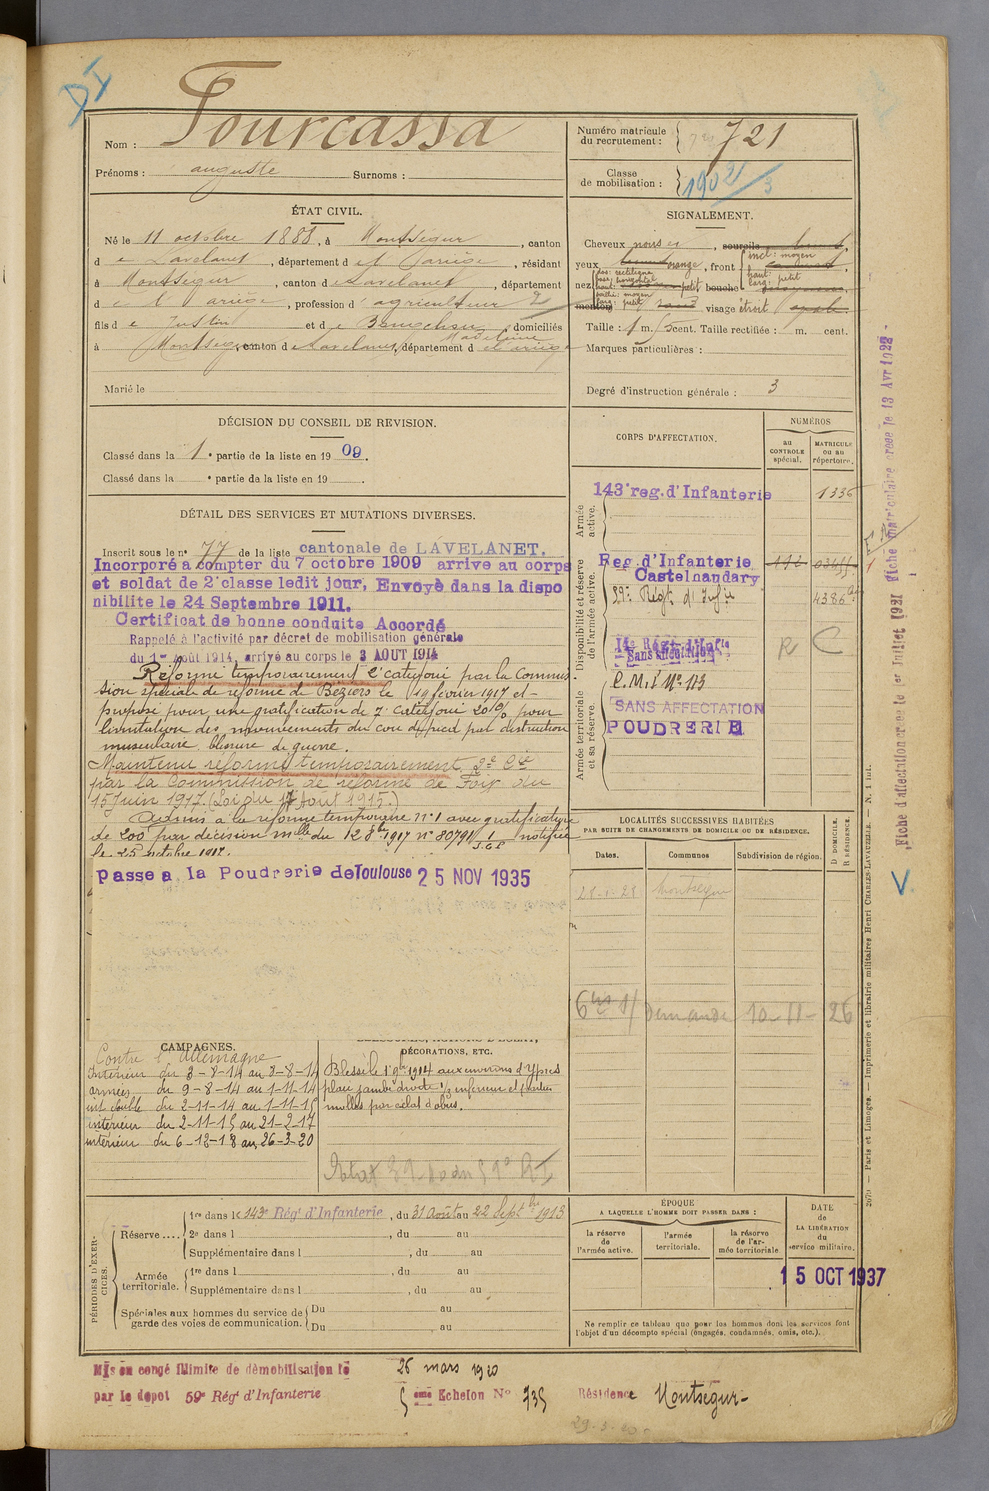 D I
Nom : Fourcassa
Prénoms : auguste Surnoms :
Numéro matricule du recrutement : 721
Classe de mobilisation : 1902 / 3
ÉTAT CIVIL.
Né le 11 octobre 1888, à Montségur, canton
d e Lavelanet, département d e l'ariège, résidant
à Montségur, canton d e Lavelanet, département
d e l'ariège, profession d' agriculteur
fils d e Justin et d e Madeleine, domiciliés
à Montségur, canton d e Lavelanet, département d e l'ariège
Marié le
SIGNALEMENT.
Cheveux noirs, sourcils
yeux orange, front incl: moyen haut: larg: petit
nez dos: rectiligne base: horizontal haut: saillie: moyen larg: petit petit bouche
menton visage étroit
Taille : 1 m. 5 cent. Taille rectifiée : m. cent.
Marques particulières :
Degré d'instruction générale : 3
DÉCISION DU CONSEIL DE REVISION.
Classé dans la 1 e partie de la liste en 19 09.
Classé dans la e partie de la liste en 19
DÉTAIL DES SERVICES ET MUTATIONS DIVERSES.
Inscrit sous le n° 77 de la liste cantonale de LAVELANET.
Incorporé a compter du 7 octobre 1909 arrive au corps
et soldat de 2e classe ledit jour, Envoyé dans la dispo
nibilite le 24 Septembre 1911.
Certificat de bonne conduite Accordé
Rappelé à l'activité par décret de mobilisation générale
du 1er août 1914, arrivé au corps le 3 AOUT 1914
Réformé temporairement 2e catégorie par la Commis
sion spéciale de réforme de Béziers le 19 février 1917 et
proposé pour une gratification de 7e catégorie 20% pour
limitation des mouvements du cou de pied par destruction
musculaire blessure de guerre.
Maintenu réformé temporairement 2e Cie
par la Commission de réforme de Foix du
15 Juin 1917. (Loi du 17 Août 1915.)
Admis à la réforme temporaire n°1 avec gratification
de 200 par décision mlle du 12 8bre 1917 n° 80791 notifiée
le 25 octobre 1917.
Passe a la Poudrerie de Toulouse 25 NOV 1935
CORPS D'AFFECTATION.
NUMÉROS
au CONTROLE spécial.
MATRICULE ou au répertoire.
Armée active.
143e reg. d'Infanterie 1336
Disponibilité et réserve de l'armée active.
Reg. d'Infanterie Castelnaudary
59e Régt d'Infie
Régt d'Infie
Sans affectation
R C
Armée territoriale et sa réserve.
C.M.I N° 113
SANS AFFECTATION
POUDRERIE
Fiche d'affectation créée le 1er Juillet 1921 Fiche matriculaire créée le 13 Avr 1928
LOCALITÉS SUCCESSIVES HABITÉES
PAR SUITE DE CHANGEMENTS DE DOMICILE OU DE RÉSIDENCE.
Dates. Communes Subdivision de région. D DOMICILE. R RÉSIDENCE.
21-1-21 Montségur
Demande 10-11-26
2070 — Paris et Limoges. — Imprimerie et librairie militaires Henri CHARLES-LAVAUZELLE.
CAMPAGNES.
Contre l'Allemagne
Intérieur du 3-8-14 au 8-8-14
armées du 9-8-14 au 1-11-14
int double du 2-11-14 au 1-11-15
intérieur du 2-11-15 au 21-2-17
intérieur du 6-12-18 au 26-3-20
DÉCORATIONS, ETC.
Blessé le 1 9bre 1914 aux environs d'Ypres
plaie jambe droite 1/3 inférieur et parties
molles par éclat d'obus.
PÉRIODES D'EXERCICES.
Réserve....
1re dans le 143e Régt d'Infanterie, du 31 août au 22 Septbre 1913
2e dans l , du au
Supplémentaire dans l , du au
Armée territoriale.
1re dans l , du au
Supplémentaire dans l , du au
Spéciales aux hommes du service de garde des voies de communication.
Du au
Du , au
ÉPOQUE
A LAQUELLE L'HOMME DOIT PASSER DANS :
la réserve de l'armée active.
l'armée territoriale.
la réserve de l'armée territoriale
DATE DE LA LIBÉRATION du service militaire.
15 OCT 1937
Ne remplir ce tableau que pour les hommes dont les services font
l'objet d'un décompte spécial (engagés, condamnés, omis, etc.).
Mis en congé illimité de démobilisation le 26 mars 1920
par le dépot 59e Régt d'Infanterie 5 ème Echelon N° 735 Résidence Montségur
29-3-20